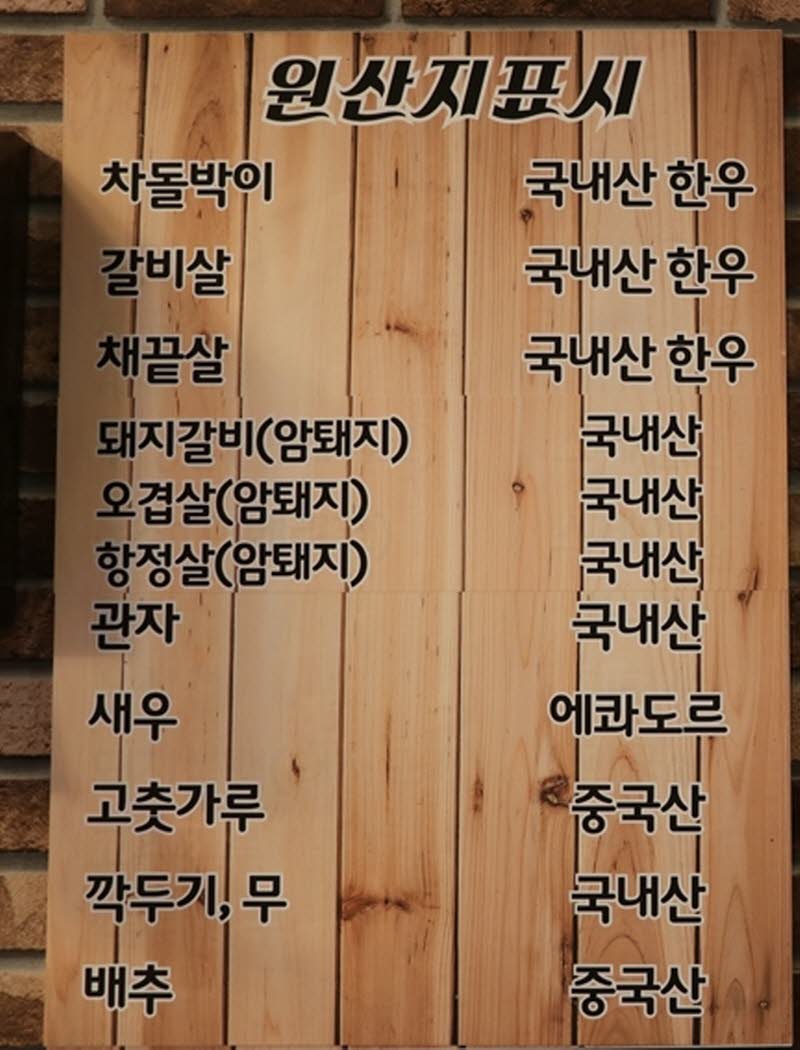 원산지표시
차돌박이 국내산 한우
갈비살 국내산 한우
채끝살 국내산 한우
돼지갈비(암퇘지) 국내산
오겹살(암퇘지) 국내산
항정살(암퇘지) 국내산
관자 국내산
새우 에콰도르
고춧가루 중국산
깍두기, 무 국내산
배추 중국산